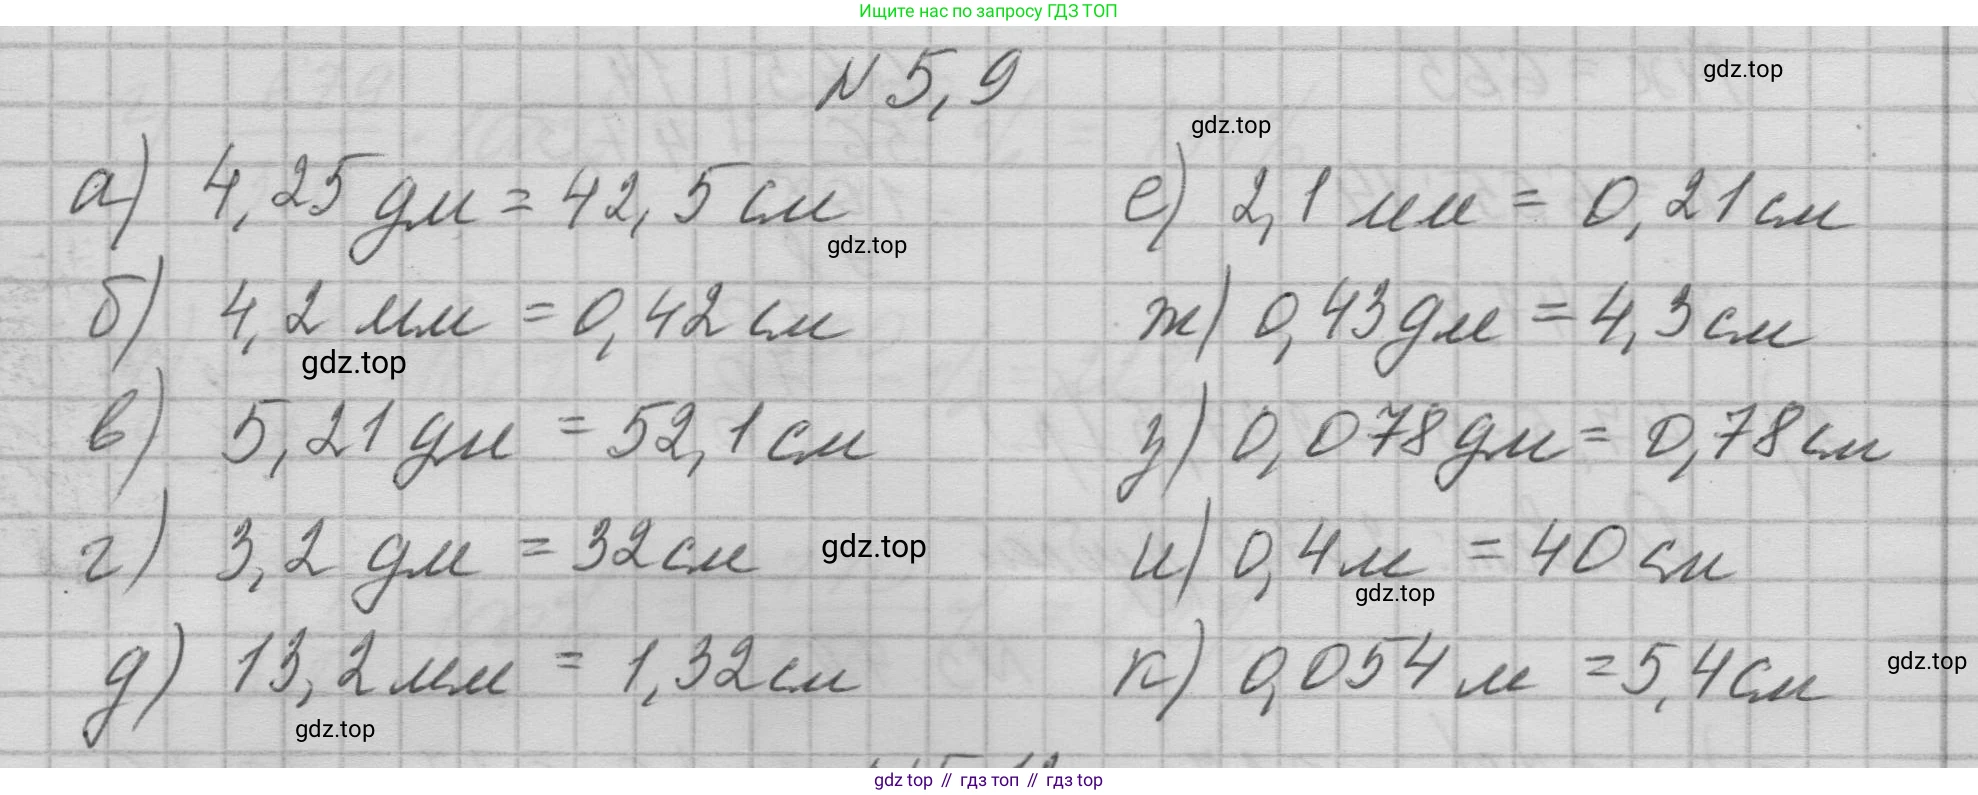 Ищите нас по запросу ГДЗ ТОП
N 5,9
gdz.top
gdz.top
а) 4,25 дм = 42,5 см
gdz.top
б) 4,2 мм = 0,42 см
gdz.top
в) 5,21 дм = 52,1 см
г) 3,2 дм = 32 см
gdz.top
д) 13,2 мм = 1,32 см
gdz.top
е) 2,1 мм = 0,21 см
ж) 0,43 дм = 4,3 см
з) 0,078 дм = 0,78 см
и) 0,4 м = 40 см
gdz.top
к) 0,054 м = 5,4 см
gdz.top
gdz top // гдз топ // гдз top